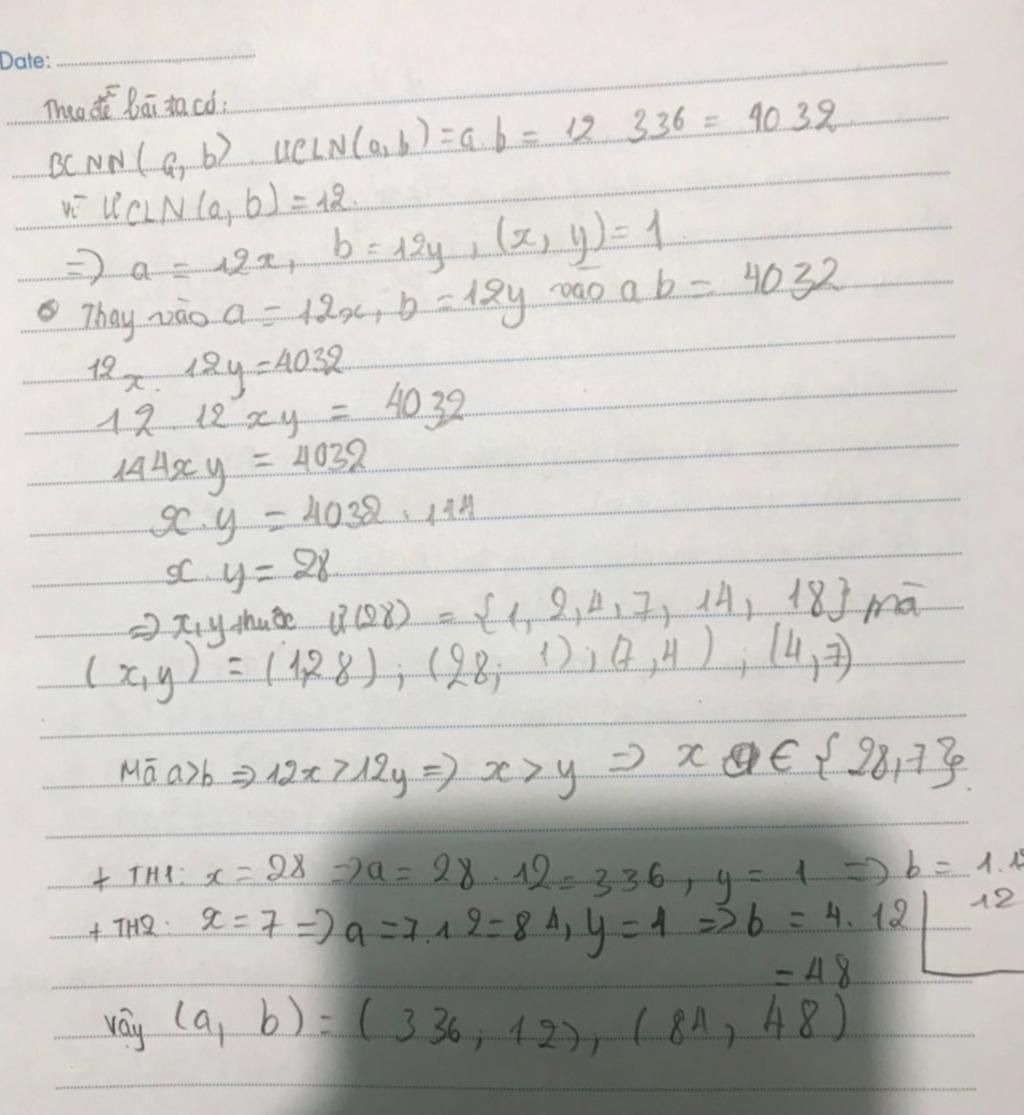 Date:
Theo đề bài ta có:
BCNN(a, b). ƯCLN(a,b) = a.b = 12 336 = 4032
vì ƯCLN(a, b) = 12.
=> a = 12x, b = 12y, (x, y) = 1
Thay vào a = 12x, b = 12y vào a b = 4032
12x. 12y = 4032
12 12 xy = 4032
144xy = 4032
x.y = 4032 . 144
x y = 28
=> x,y thuộc Ư(28) = {1, 2, 4, 7, 14, 18} mà
(x,y) = (1,28); (28; 1); (7,4); (4,7)
Mà a>b => 12x>12y => x>y => x ∈ {28,7}.
+ TH1: x = 28 => a = 28 . 12 = 336, y = 1 => b = 1.12
12
+ TH2: x = 7 => a = 7.12 = 84, y = 4 => b = 4.12
= 48
vậy (a, b) = (336; 12), (84, 48)